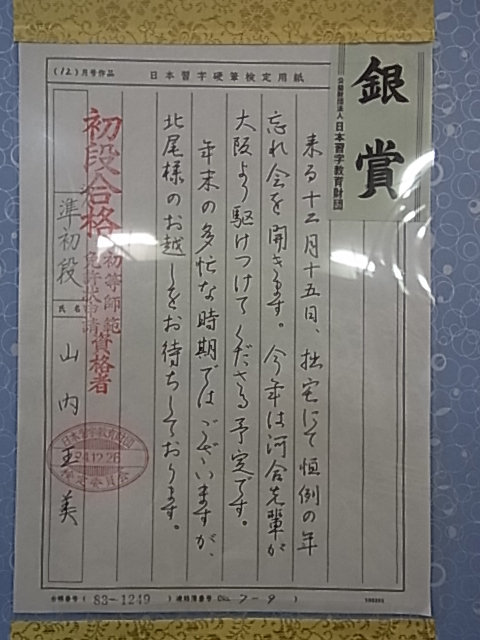 (12)月号作品
日本習字硬筆検定用紙
銀賞
公益財団法人 日本習字教育財団
来る十二月十五日、拙宅にて恒例の年
忘れ会を開きます。今年は河合先輩が
大阪より駆けつけてくださる予定です。
年末の多忙な時期ではございますが、
北尾様のお越しをお待ちしております。
初段合格
初等師範
免許申請資格者
準初段
氏名
山内
美
日本習字教育財団
24.12.26
検定委員会
会員番号(83-1249)
7-9